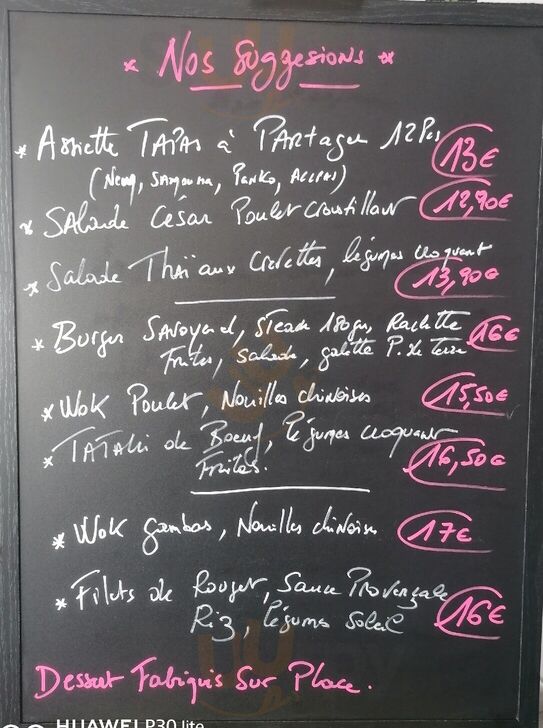 * Nos Suggesions *
* Assiette TAPAS à PARtager 12Pcs 13€
(Nem, SAMoussa, PANKO, ACCRAS)
* SALade César Poulet Croustillant 12,90€
* Salade Thaï aux Crevettes, légumes croquant 13,90€
* Burger Savoyard, Steak 180gr, Raclette 16€
Frites, Salade, galette P. de Terre
* Wok Poulet, Nouilles chinoises 15,50€
* TATAKi de Boeuf, légumes croquant 16,50€
Frites.
* Wok gambas, Nouilles chinoises 17€
* Filets de Rouget, Sauce Provençale 16€
Riz, légumes Soleil
Dessert Fabriqués Sur Place.
HUAWEI P30 lite